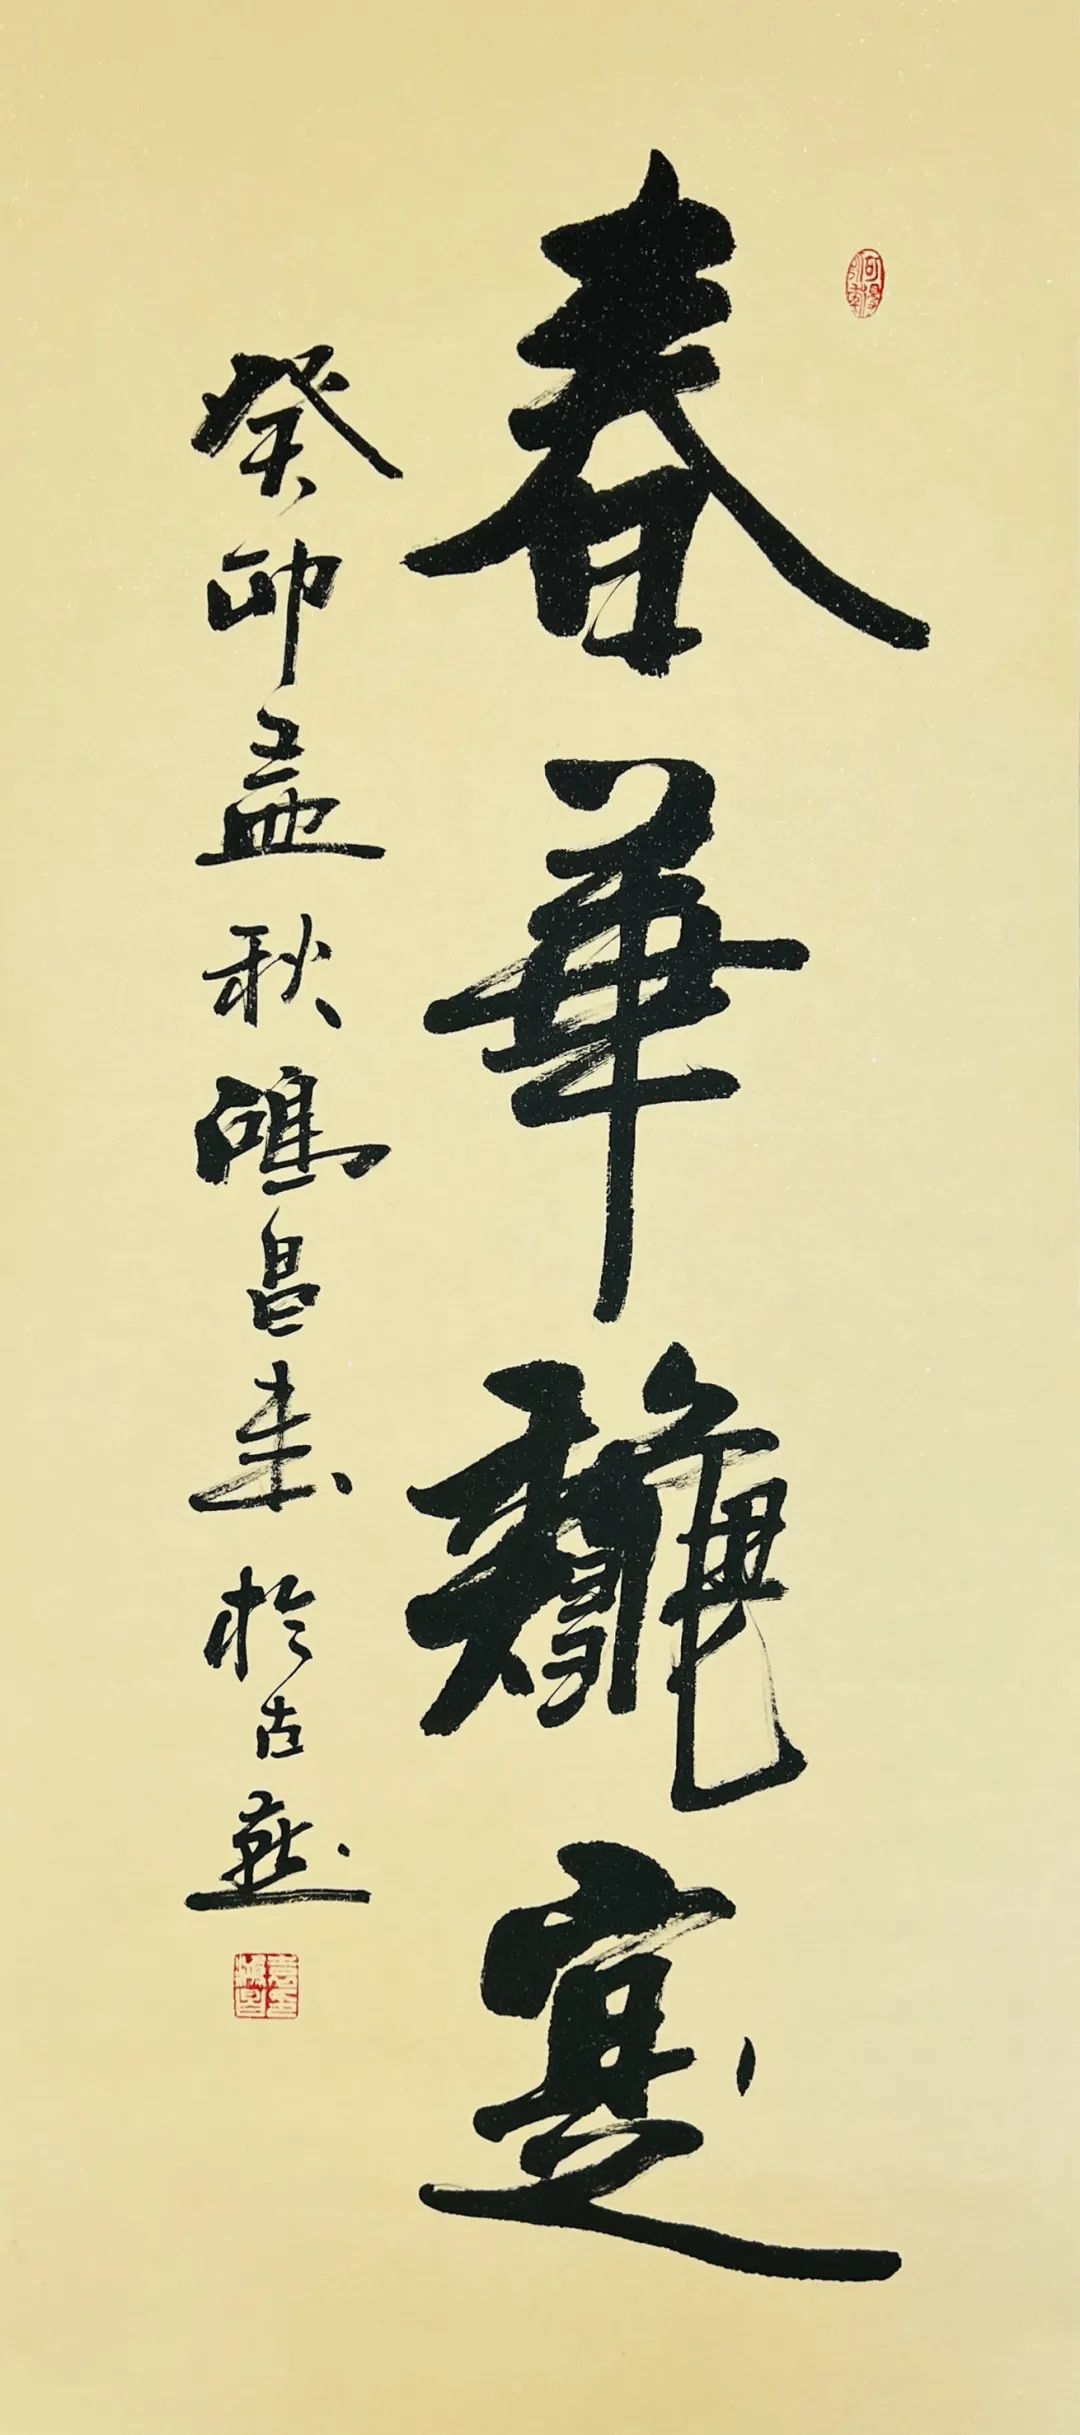 春華龝寔
癸卯孟秋鴻昌書於古燕